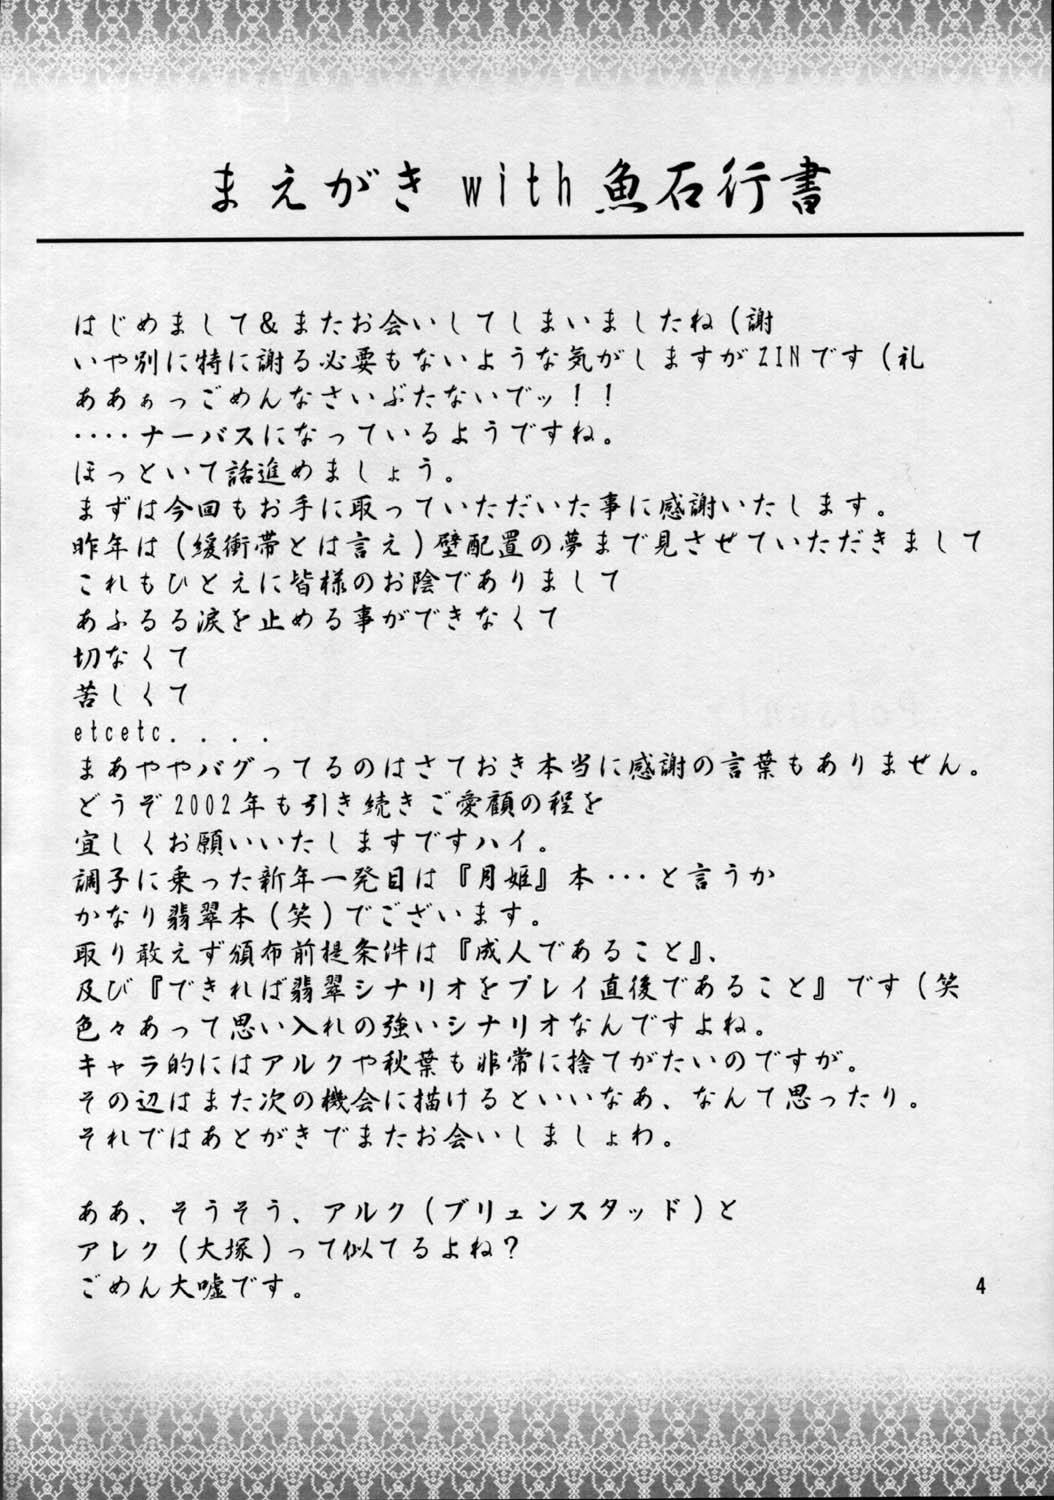 まえがき with 魚石行書
はじめまして＆またお会いしてしまいましたね（謝
いや別に特に謝る必要もないような気がしますがZINです（礼
ああぁっごめんなさいぶたないでッ！！
‥‥ナーバスになっているようですね。
ほっといて話進めましょう。
まずは今回もお手に取っていただいた事に感謝いたします。
昨年は（緩衝帯とは言え）壁配置の夢まで見させていただきまして
これもひとえに皆様のお陰でありまして
あふるる涙を止める事ができなくて
切なくて
苦しくて
etcetc．．．．
まあややバグってるのはさておき本当に感謝の言葉もありません。
どうぞ2002年も引き続きご愛顧の程を
宜しくお願いいたしますですハイ。
調子に乗った新年一発目は『月姫』本･･･と言うか
かなり翡翠本（笑）でございます。
取り敢えず頒布前提条件は『成人であること』、
及び『できれば翡翠シナリオをプレイ直後であること』です（笑
色々あって思い入れの強いシナリオなんですよね。
キャラ的にはアルクや秋葉も非常に捨てがたいのですが。
その辺はまた次の機会に描けるといいなあ、なんて思ったり。
それではあとがきでまたお会いしましょわ。
ああ、そうそう、アルク（ブリュンスタッド）と
アレク（大塚）って似てるよね？
ごめん大嘘です。
4